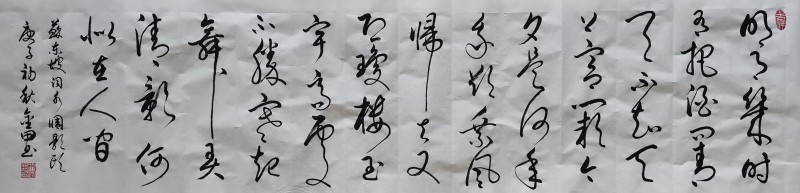 明月幾时
有把酒问青
天不知天
上宫阙今
夕是何年
我欲乘风
歸去又
恐瓊樓玉
宇高處
不勝寒起
舞弄
清影何
似在人间
蘇东坡词水调歌头
庚子初秋金田书